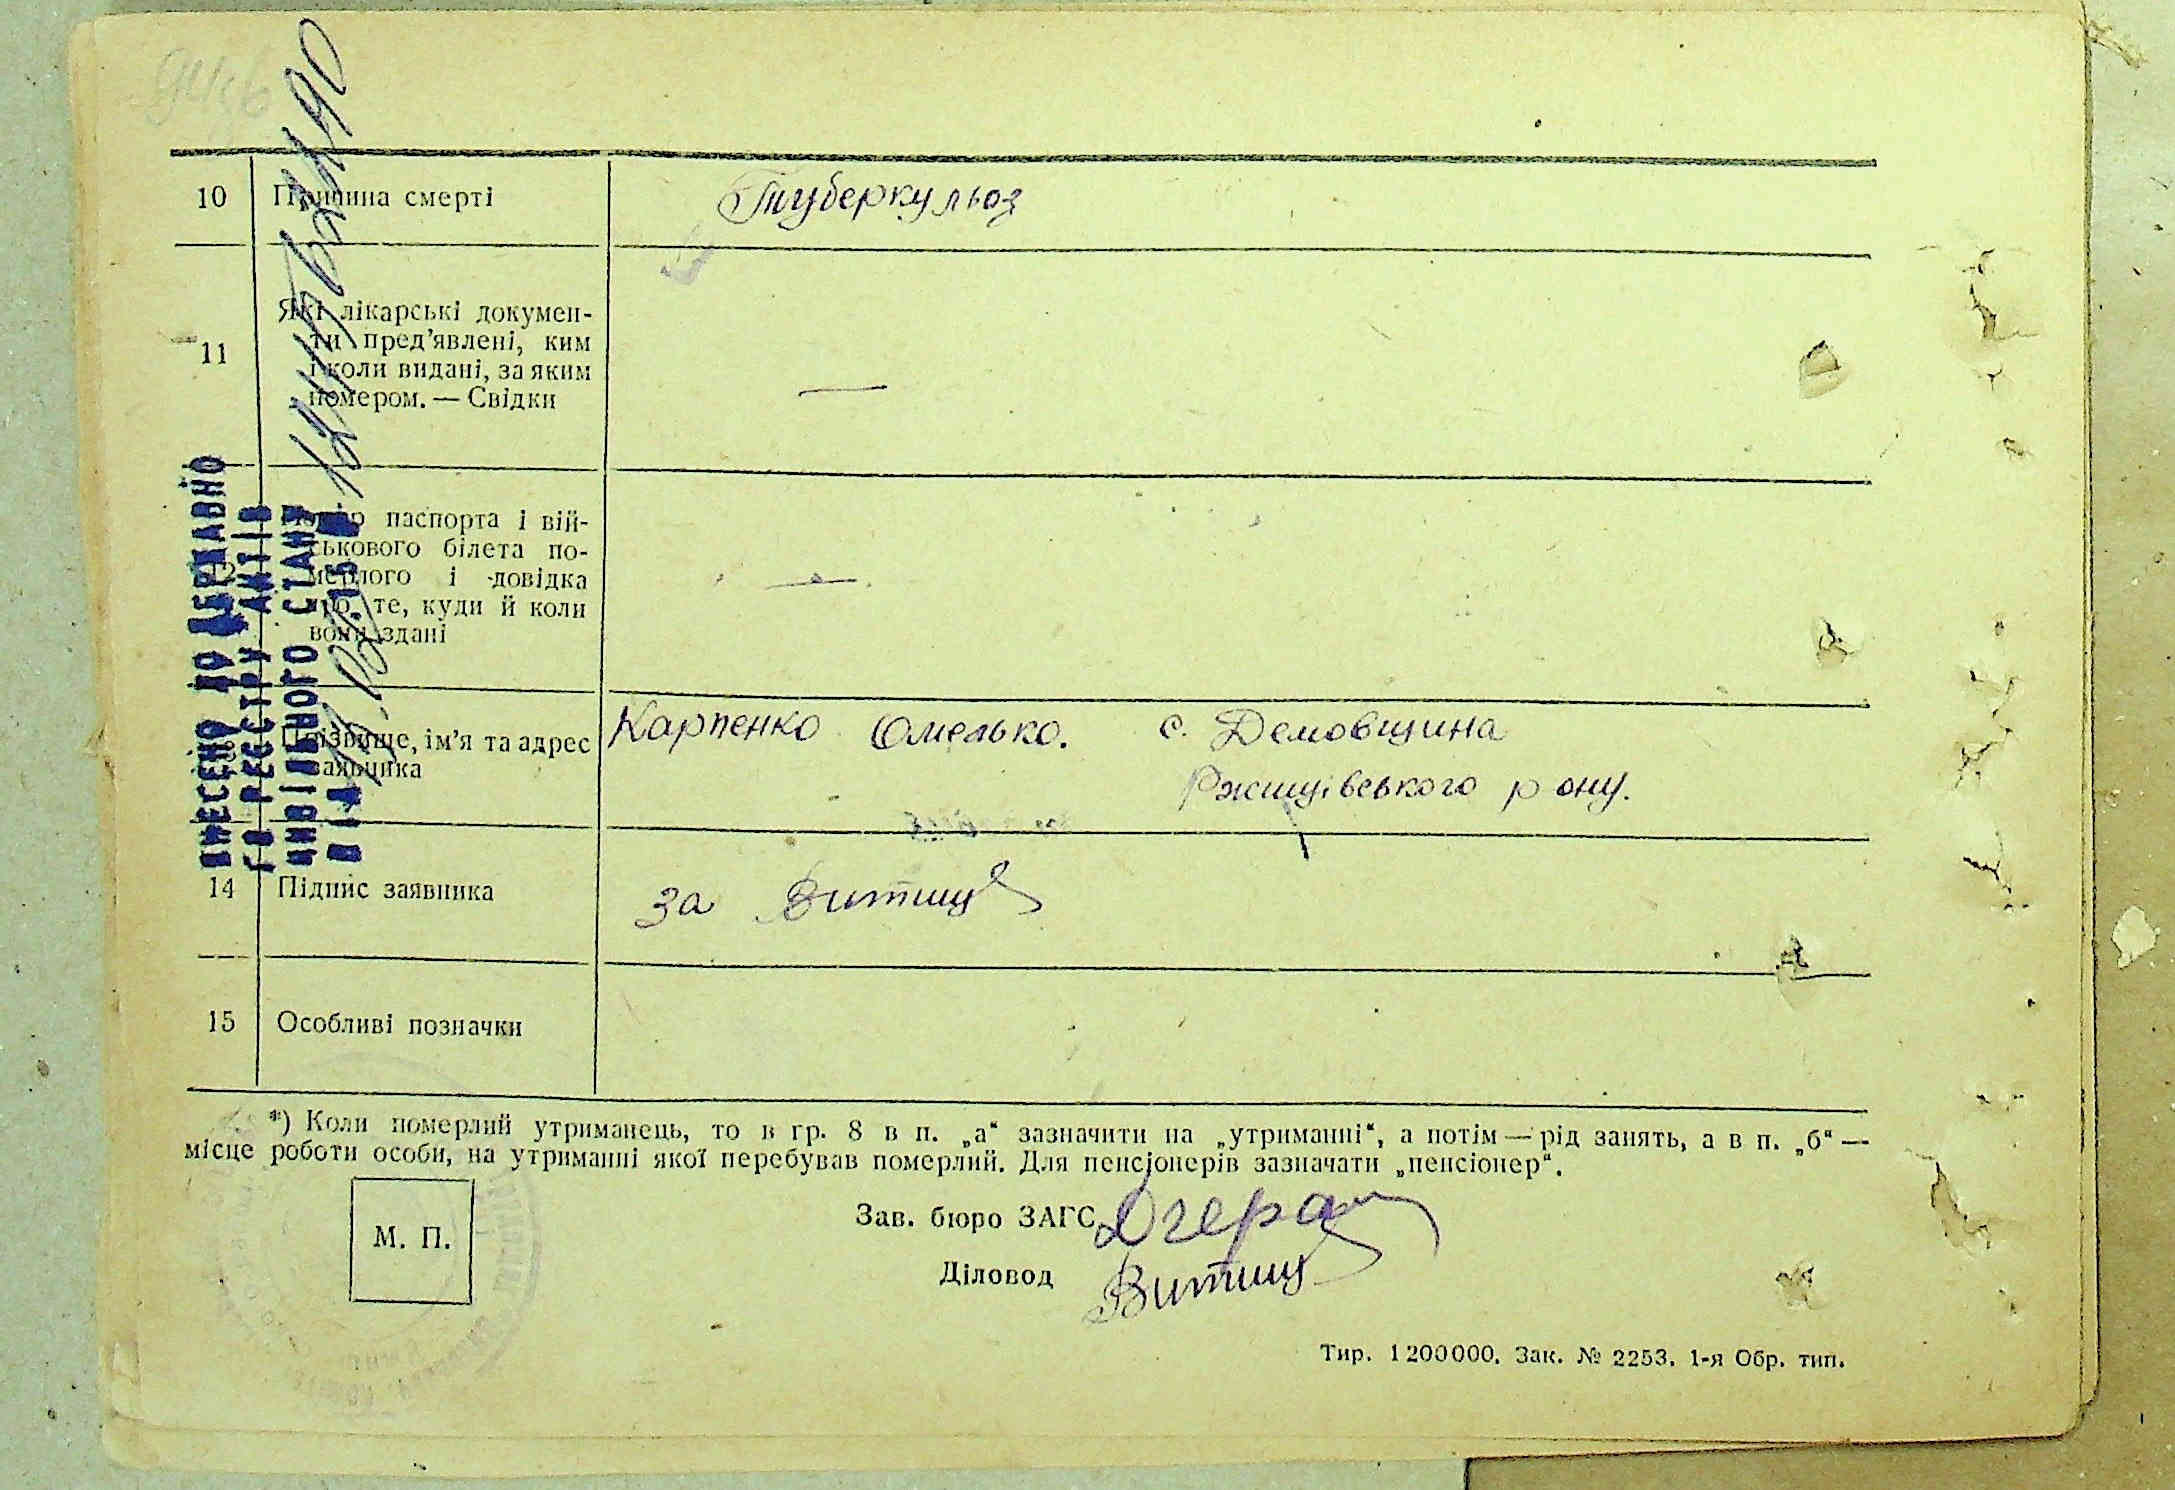 10 Причина смерті Туберкульоз
11 Які лікарські докумен-
ти пред'явлені, ким
і коли видані, за яким
номером. — Свідки —
12 паспорта і вій-
ськового білета по-
мерлого і довідка
про те, куди й коли
вони здані —
Прізвище, ім'я та адрес Карпенко Омелько. с. Демовщина
заявника Ржищівського р ону.
14 Підпис заявника за Витищ
15 Особливі позначки
*) Коли померлий утриманець, то в гр. 8 в п. „а“ зазначити на „утриманні“, а потім — рід занять, а в п. „б“ —
місце роботи особи, на утриманні якої перебував померлий. Для пенсіонерів зазначати „пенсіонер“.
М. П.
Зав. бюро ЗАГС
Діловод Витищ
Тир. 1200000. Зак. № 2253. 1-я Обр. тип.
ВНЕСЕНО ДО ДЕРЖАВНО
ГО РЕЄСТРУ АКТІВ
ЦИВІЛЬНОГО СТАНУ
ВІД